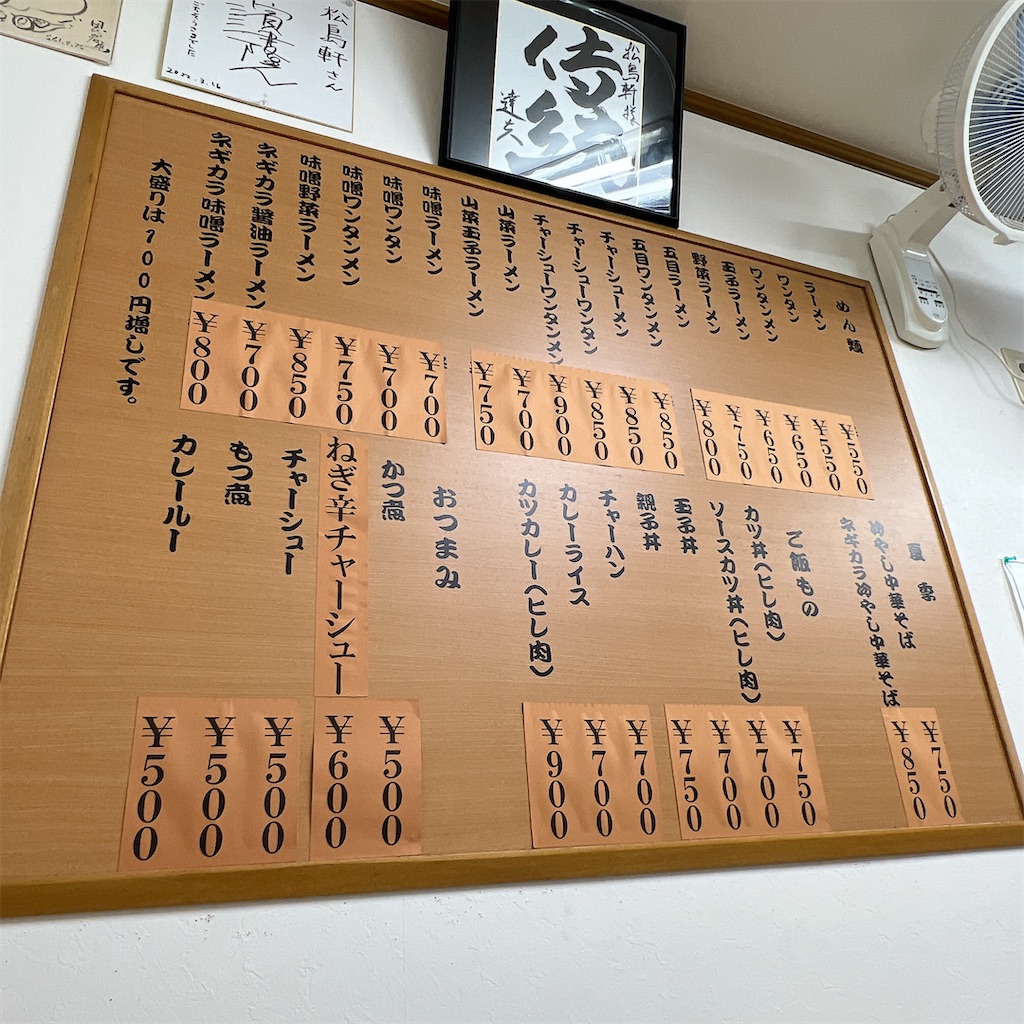 松島軒さん
2022.3.16
松島軒様
達久
めん類
ラーメン ¥550
ワンタン ¥550
ワンタンメン ¥650
玉子ラーメン ¥650
野菜ラーメン ¥750
五目ラーメン ¥800
五目ワンタンメン ¥850
チャーシューメン ¥850
チャーシューワンタン ¥850
チャーシューワンタンメン ¥900
山菜ラーメン ¥700
山菜玉子ラーメン ¥750
味噌ラーメン ¥700
味噌ワンタン ¥700
味噌ワンタンメン ¥750
味噌野菜ラーメン ¥850
ネギカラ醤油ラーメン ¥700
ネギカラ味噌ラーメン ¥800
大盛りは100円増しです。
夏季
冷やし中華そば ¥750
ネギカラ冷やし中華そば ¥850
ご飯もの
カツ丼(ヒレ肉) ¥750
ソースカツ丼(ヒレ肉) ¥700
玉子丼 ¥700
親子丼 ¥750
チャーハン ¥700
カレーライス ¥700
カツカレー(ヒレ肉) ¥900
おつまみ
かつ煮 ¥500
ねぎ辛チャーシュー ¥600
チャーシュー ¥500
もつ煮 ¥500
カレールー ¥500